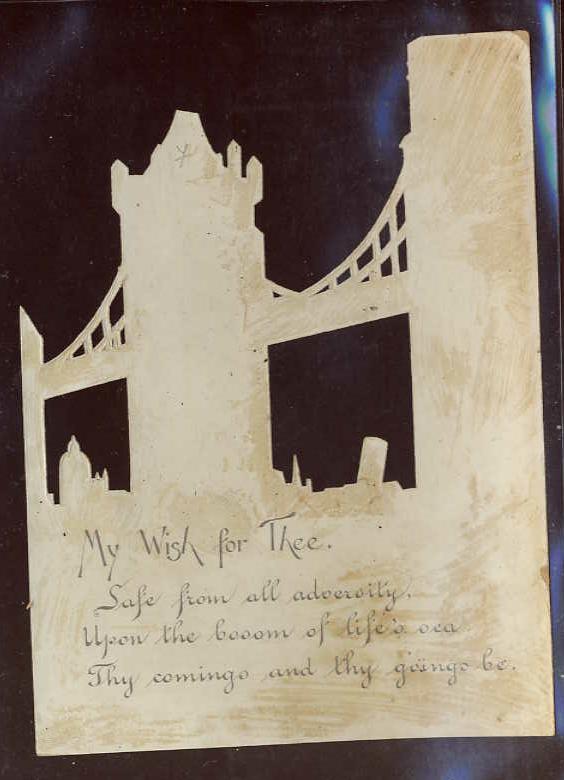 My Wish for Thee.
Safe from all adversity,
Upon the bosom of life's sea
Thy comings and thy goings be.